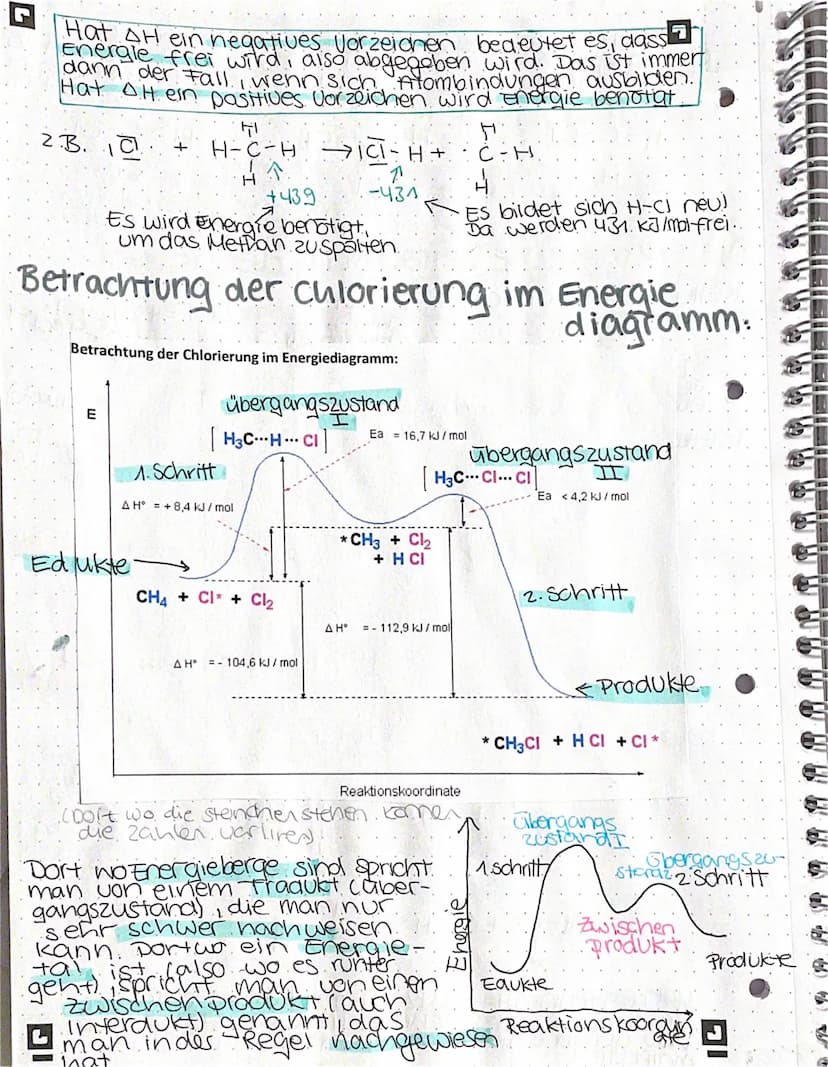 Hat ΔH ein negatives Vorzeichen bedeutet es, dass
Energie frei wird, also abgegeben wird. Das ist immer
dann der Fall, wenn sich Atombindungen ausbilden.
Hat ΔH ein positives Vorzeichen wird Energie benötigt.
H
H
z.B. |Cl· + H-C-H → |Cl-H + · C-H
H
H
+439
-431
Es wird Energie benötigt,
um das Methan zu spalten
Es bildet sich H-Cl neu!
Da werden 431 KJ/mol frei.
Betrachtung der Chlorierung im Energie
diagramm:
Betrachtung der Chlorierung im Energiediagramm:
E
Übergangszustand
I
[H₃C···H···Cl]
Ea = 16,7 kJ / mol
Übergangszustand
II
[H₃C···Cl···Cl]
Ea < 4,2 kJ / mol
1. Schritt
Δ H° = + 8,4 kJ / mol
*CH₃ + Cl₂
+ H Cl
Edukte
CH₄ + Cl* + Cl₂
2. Schritt
Δ H° = - 112,9 kJ / mol
Δ H° = - 104,6 kJ / mol
Produkte
*CH₃Cl + H Cl + Cl*
Reaktionskoordinate
(Dort wo die sternchen stehen können
die Zahlen variieren)
Dort wo Energieberge sind spricht
man von einem Produkt (über-
gangszustand), die man nur
sehr schwer nachweisen
kann. Dort wo ein Energie-
tal ist (also wo es runter
geht), spricht man von einen
zwischenprodukt (auch
genannt, das
man in der Regel nachgewiesen
hat
Übergangs
zustand I
1 Schritt
Übergangszu-
stand 2 Schritt
Energie
Zwischen
produkt
Produkte
Edukte
Reaktionskoordin
ate